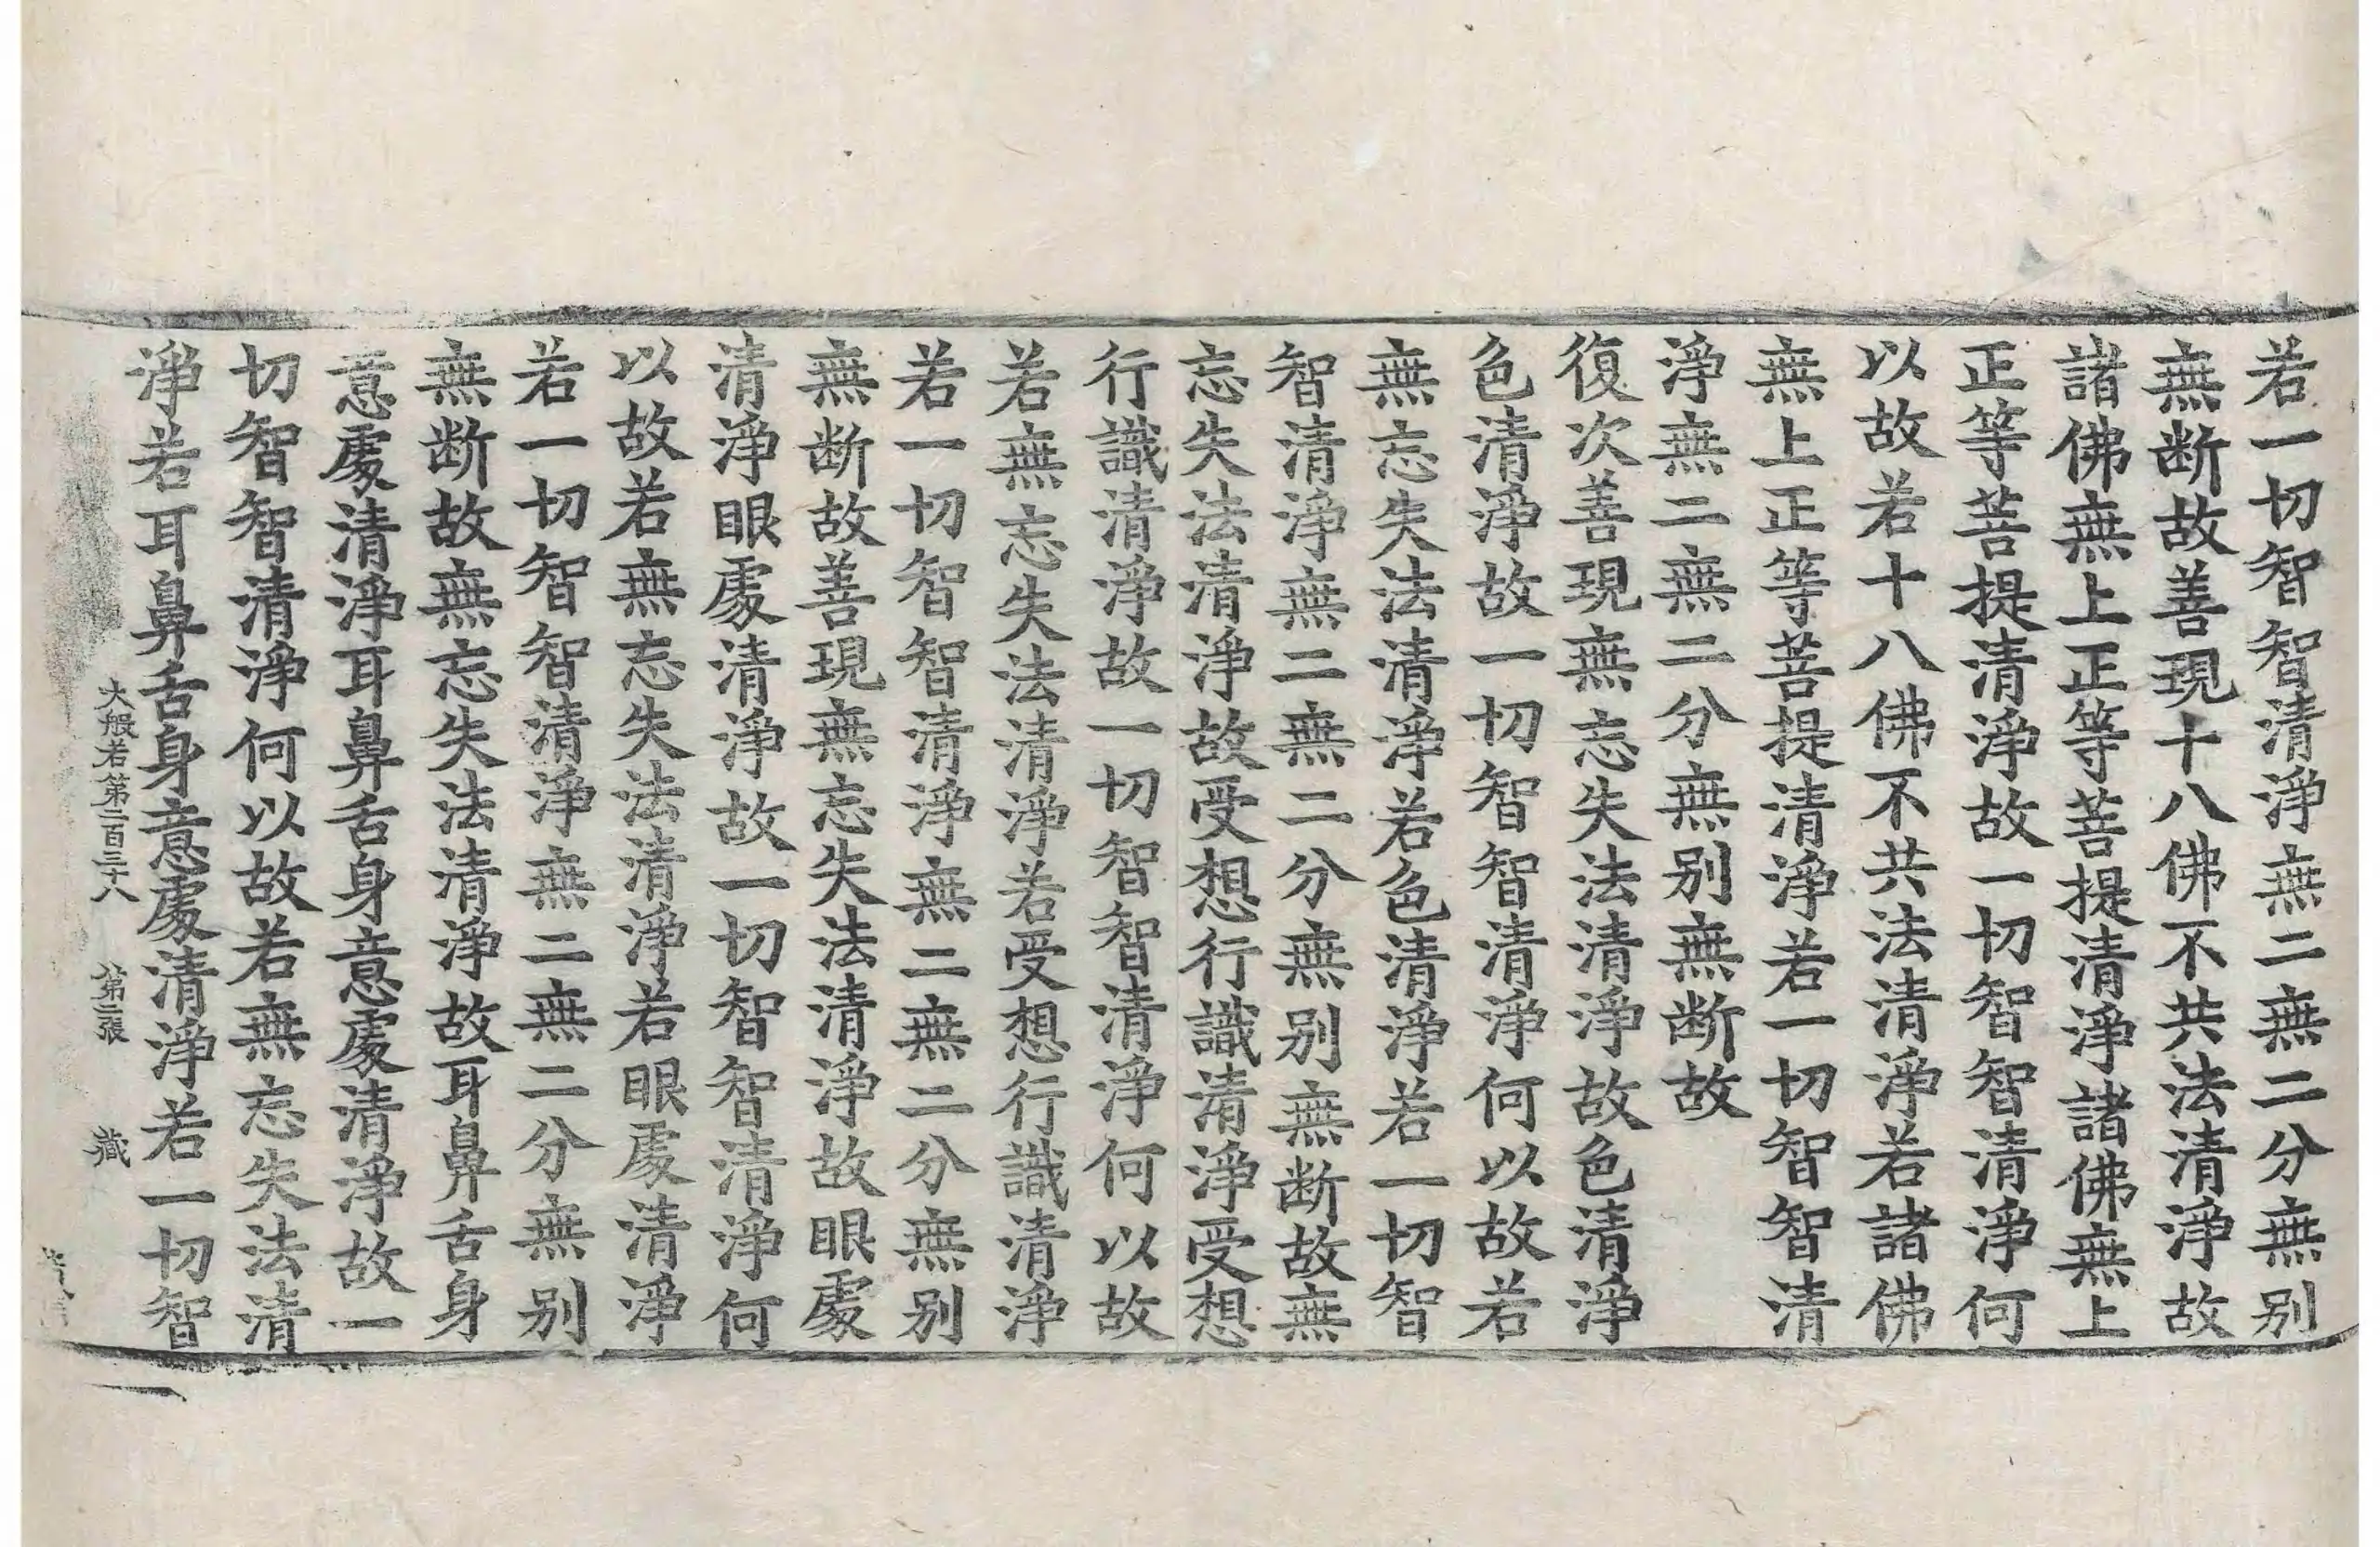 若一切智智清淨無二無二分無别
無断故善現十八佛不共法清淨故
諸佛無上正等菩提清淨諸佛無上
正等菩提清淨故一切智智清淨何
以故若十八佛不共法清淨若諸佛
無上正等菩提清淨若一切智智清
淨無二無二分無别無断故
復次善現無忘失法清淨故色清淨
色清淨故一切智智清淨何以故若
無忘失法清淨若色清淨若一切智
智清淨無二無二分無别無断故無
忘失法清淨故受想行識清淨受想
行識清淨故一切智智清淨何以故
若無忘失法清淨若受想行識清淨
若一切智智清淨無二無二分無别
無断故善現無忘失法清淨故眼處
清淨眼處清淨故一切智智清淨何
以故若無忘失法清淨若眼處清淨
若一切智智清淨無二無二分無别
無断故無忘失法清淨故耳鼻舌身
意處清淨耳鼻舌身意處清淨故一
切智智清淨何以故若無忘失法清
淨若耳鼻舌身意處清淨若一切智
大般若第二百三十八 第二張 藏